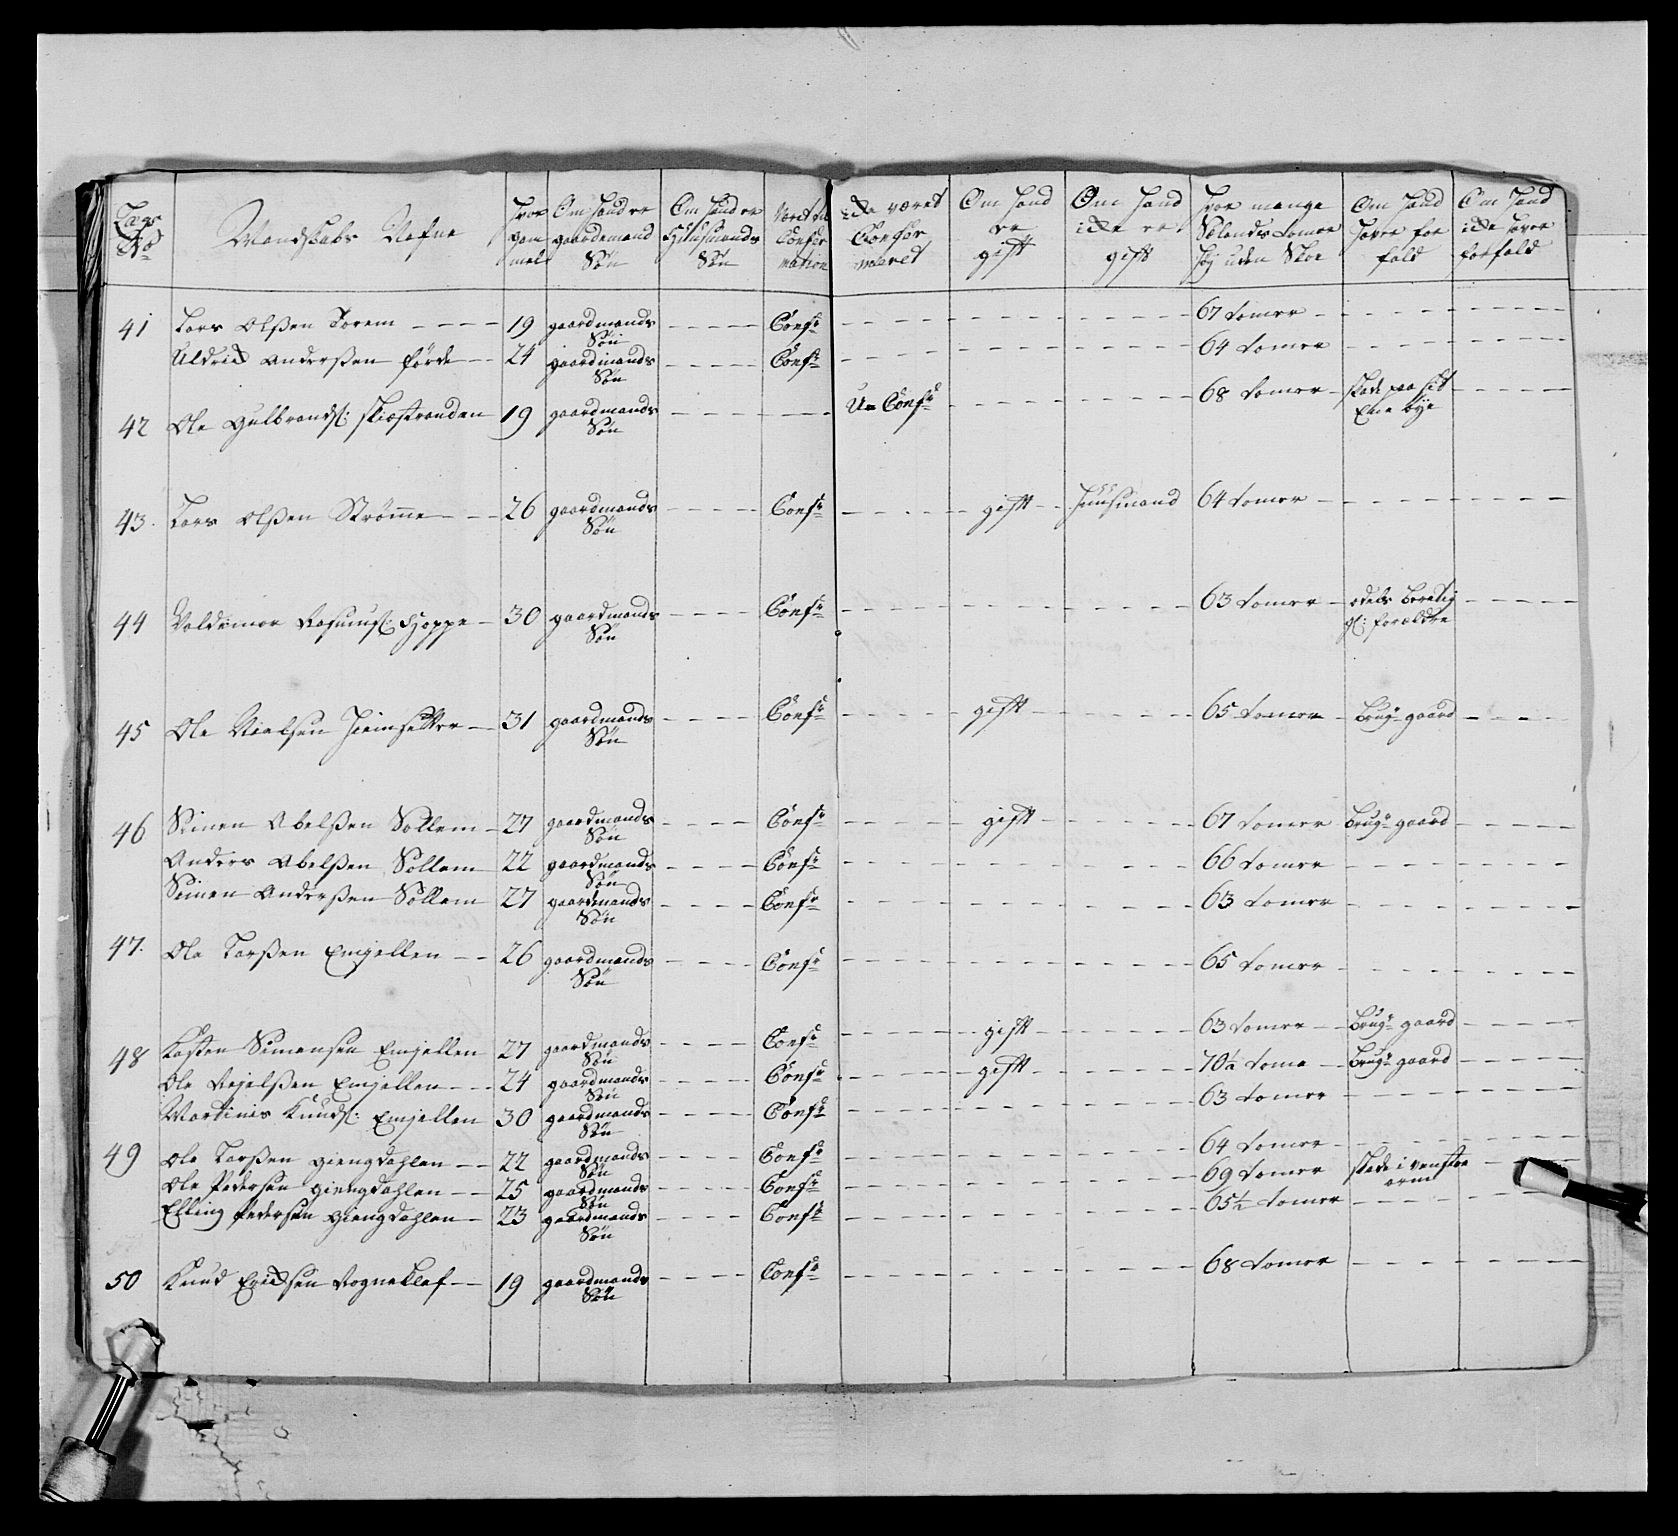 Lægs No | Mandskabs Nafne | Hvor gam mel | Om hand er gaardemand Søn | Om hand er Huusmands Søn | Været til Confir mation | icke været Confir meret | Om hand er gift | Om hand icke er gift | Hvor mange Sælands tomer høy uden Skoe | Om hand haver for fald | Om hand icke haver forfald
41 Lars Olßen Torem 19 gaardmands Søn Confr 67 tomer
Uldrick Anderßen förde 24 gaardmands Søn Confr 64 tomer
42 Ole Gulbrands: 19 gaardmands Søn U= Confr 68 tomer skade paa sit Ene Øye
43. Lars Olßen Strømme 26 gaardmands Søn Confr gift Huusmand 64 tomer
44 Valdemar Rasmus: Hoppe 30 gaardmands Søn Confr 63 tomer odels beretig gl: forældre
45 Ole Nielsen 31 gaardmands Søn Confr gift 65 tomer Brugr gaard
46 Simen Abelßen Sollem 27 gaardmands Søn Confr gift 67 tomer Brugr gaard
Anders Abelßen Sollem 22 gaardmands Søn Confr 66 tomer
Simen Anderßen Sollem 27 gaardmands Søn Confr 63 tomer
47. Ole Larßen Emjellen 26 gaardmands Søn Confr 65 tomer
48 Kasten Simensen Emjellen 27 gaardmands Søn Confr gift 63 tomer Brugr gaard
Ole Emjellen 24 gaardmands Søn Confr gift 70 1/2 tome Brugr gaard
Martinus Knuds: Emjellen 30 gaardmands Søn Confr 63 tomer
49 Ole Larßen Giengdahlen 22 gaardmands Søn Confr 64 tomer
Ole Pedersen Giengdahlen 25 gaardmands Søn Confr 69 tomer skade i venster arm
Elling Pedersen Giengdahlen 23 gaardmands Søn Confr 65 1/2 tomer
50 Knud Ericksen Rogneklef 19 gaardmands Søn Confr 68 tomer